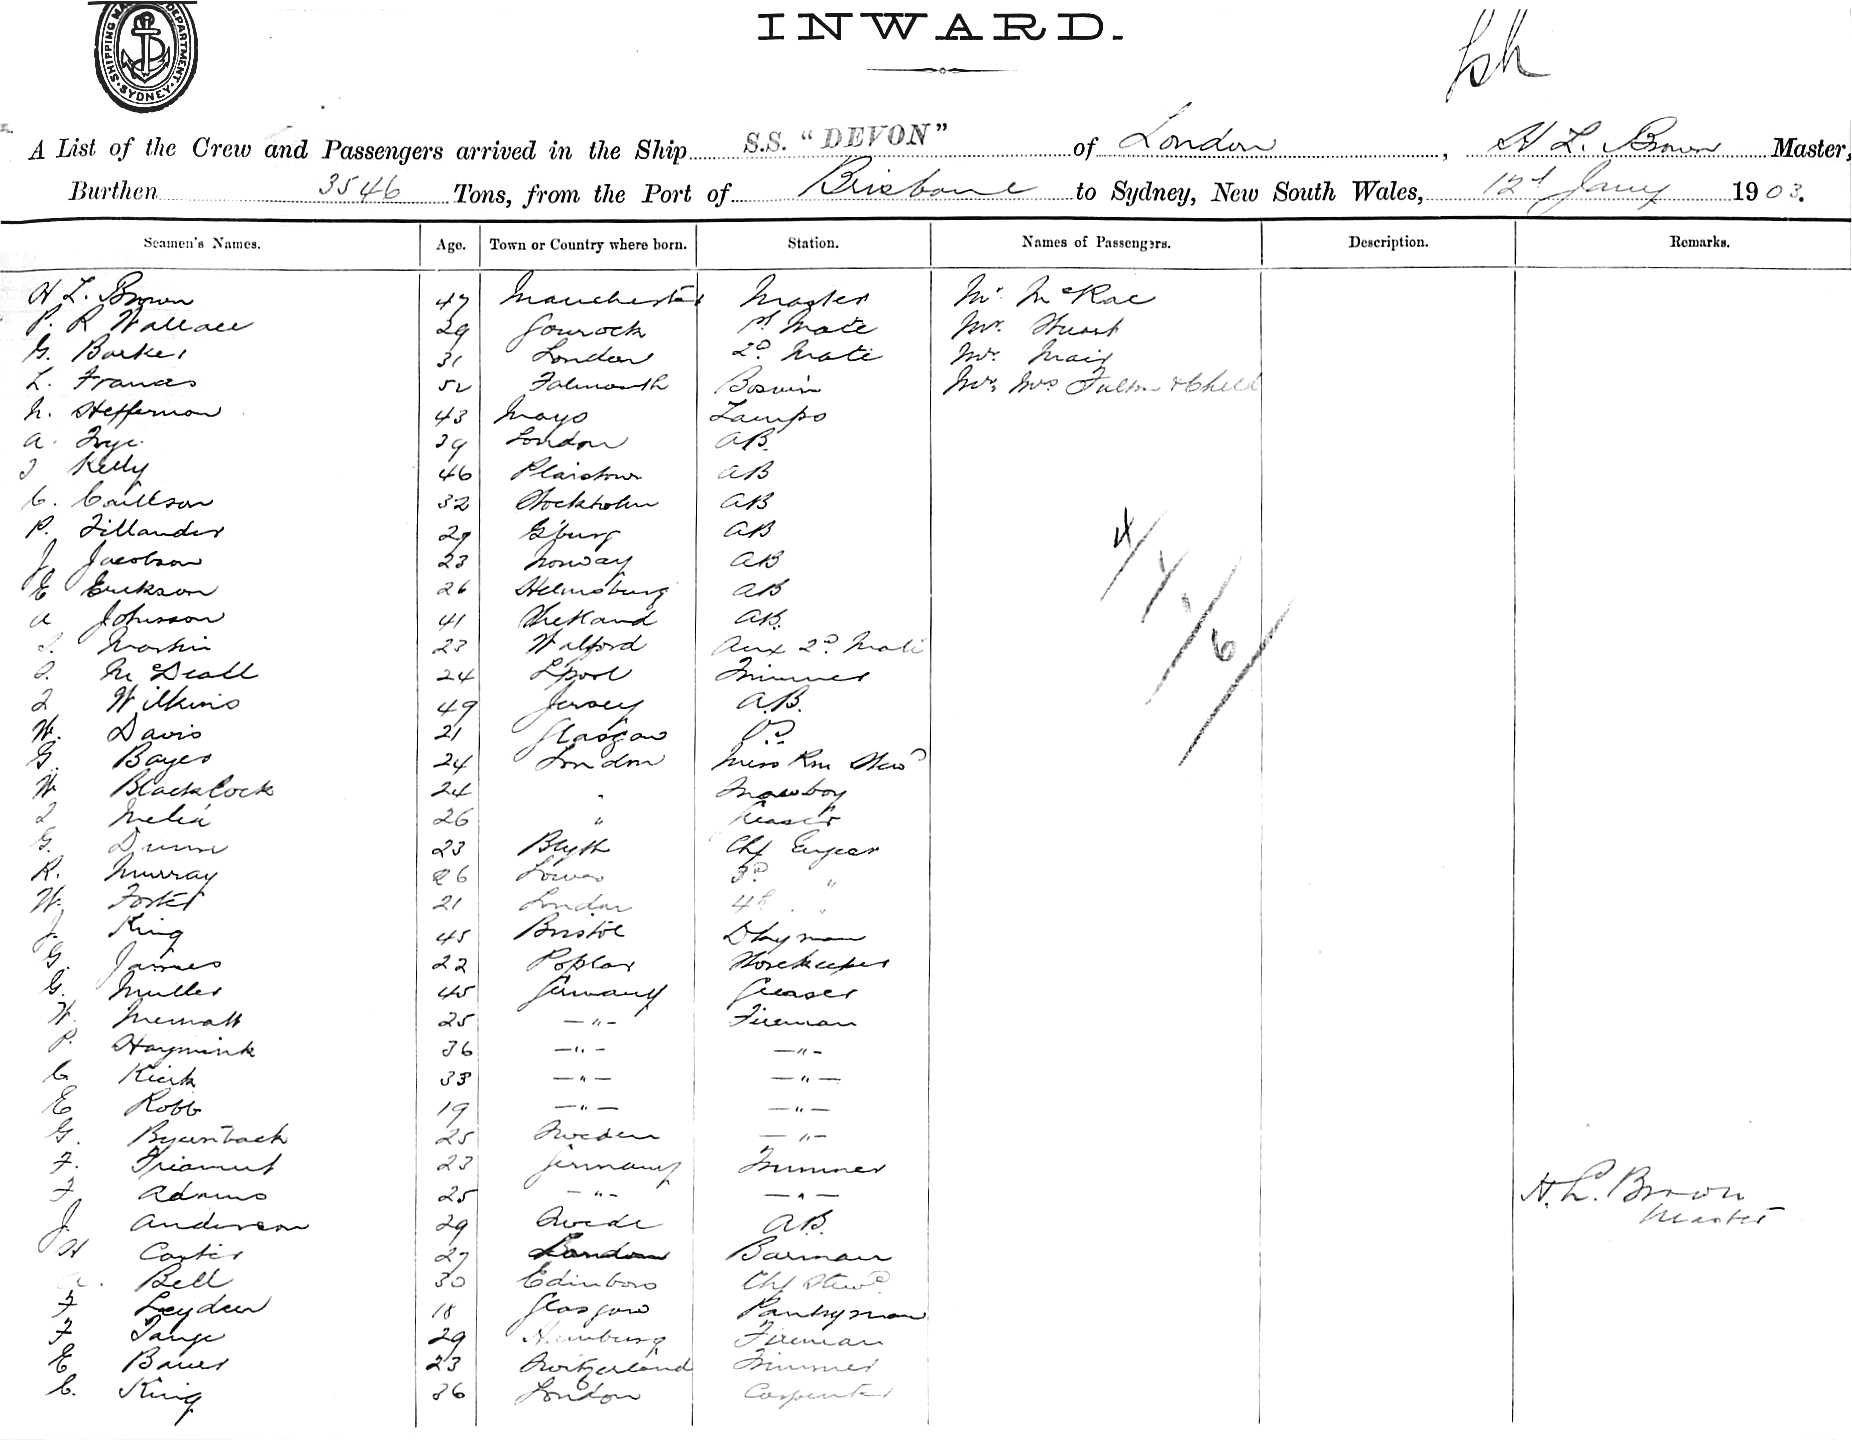 SHIPPING MA DEPARTMENT
SYDNEY
INWARD.
A List of the Crew and Passengers arrived in the Ship S.S. "DEVON" of London, H L. Brown Master,
Burthen 3546 Tons, from the Port of Brisbane to Sydney, New South Wales, 12th Jany 1903.
Seamen's Names. Age. Town or Country where born. Station. Names of Passengers. Description. Remarks.
H L. Brown 47 Manchester Master Mr McRae
P. R Wallace 29 Gourock 1st Mate Mr. Stuart
G. Barker 31 London 2D Mate Mr Mair
L. Francis 52 Falmouth Bosun Mr, Mrs Fulton & Child
N. Heffernon 43 Mayo Lamps
A. Frye 39 London AB.
J Kelly 46 Plaistow AB
C. Carllson 32 Stockholm AB
P. Fillander 29 G'burg AB
J Jacobson 23 Norway AB
E Erikson 26 Helmsburg AB
A Johnson 41 Shetland AB.
Martin 23 Walford Aux 2D Mate
McDeall 24 L'pool Trimmer
Wilkins 49 Jersey A.B.
W. Davis 21 Glasgow
G. Bayes 24 London Mess Rm StewD
W Blacklock 24 " Messboy
Melia 26 " Greaser
G. Dunn 23 Blyth Chf Engeer
R. Murray 26 3D "
W. Foster 21 London 4th "
J. King 45 Bristol Dkyman
G. James 22 Poplar Storekeeper
G. Muller 45 Germany Greaser
W. 25 — " - Fireman
P. Haymink 36 — " - — " -
C Kirk 33 — " — — " —
E Robb 19 — " — — " —
G. 25 Sweden — " -
F. 23 Germany Trimmer
F Adams 25 — " - — " —
J. Anderson 29 Swede A.B.
H Carter 27 London Barman
A. Bell 30 Edinboro Chf StewD
F Leyden 18 Glasgow Pantryman
F Tange 29 Hamburg Fireman
E Bauer 23 Switzerland Trimmer
C. King 36 London Carpenter
H. L. Brown
Master